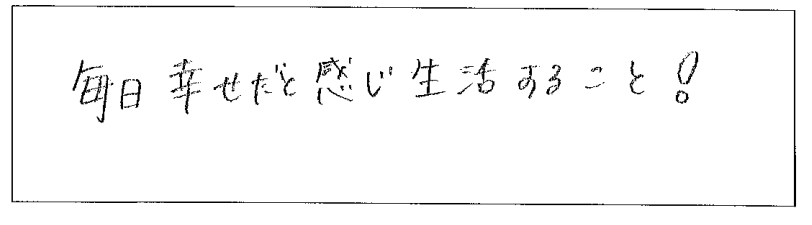 毎日幸せだと感じ生活すること!